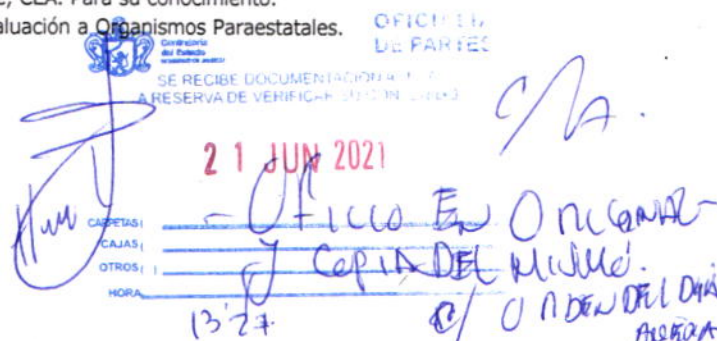 CEA. Para su conocimiento.
aluación a Organismos Paraestatales.
OFICIALIA
DE PARTES
Contraloría
del Estado
SE RECIBE DOCUMENTACIÓN
A RESERVA DE VERIFICAR SU CONTENIDO
C/A.
21 JUN 2021
CARPETAS( - OFICIO EN ORIGINAL
CAJAS( Y COPIA DEL MISMO.
OTROS( ) C/ ORDEN DEL DIA
HORA 13:27